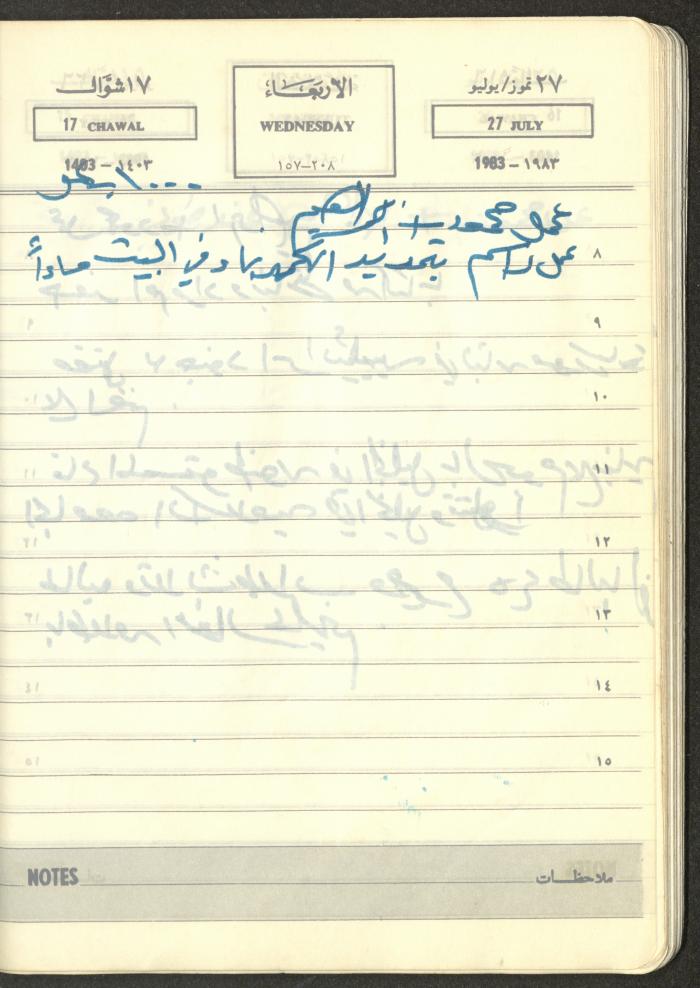 ١٧ شوّال
الأربعاء
٢٧ تموز/يوليو
17 CHAWAL
WEDNESDAY
27 JULY
1403 – ١٤٠٣
١٥٧–٢٠٨
1983 – ١٩٨٣
عمل محمود
٨ عمل بتمديد الكهرباء في البيت مساءً
٩
١٠
١١
١٢
١٣
١٤
١٥
NOTES ملاحظات